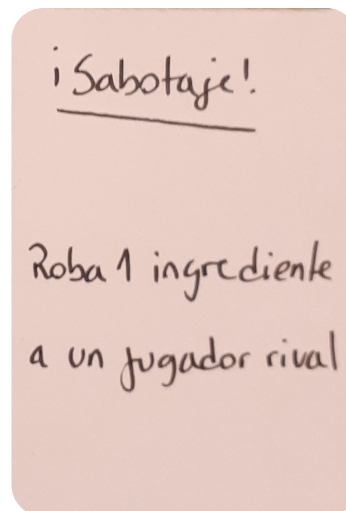 ¡Sabotaje!
Roba 1 ingrediente
a un jugador rival